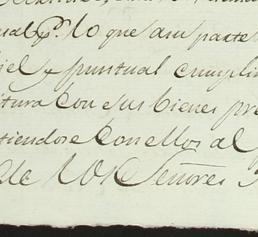 que am parte
fiel y puntual cumpli
itura con sus bienes pre
tiendose con ellos al
de los Señores